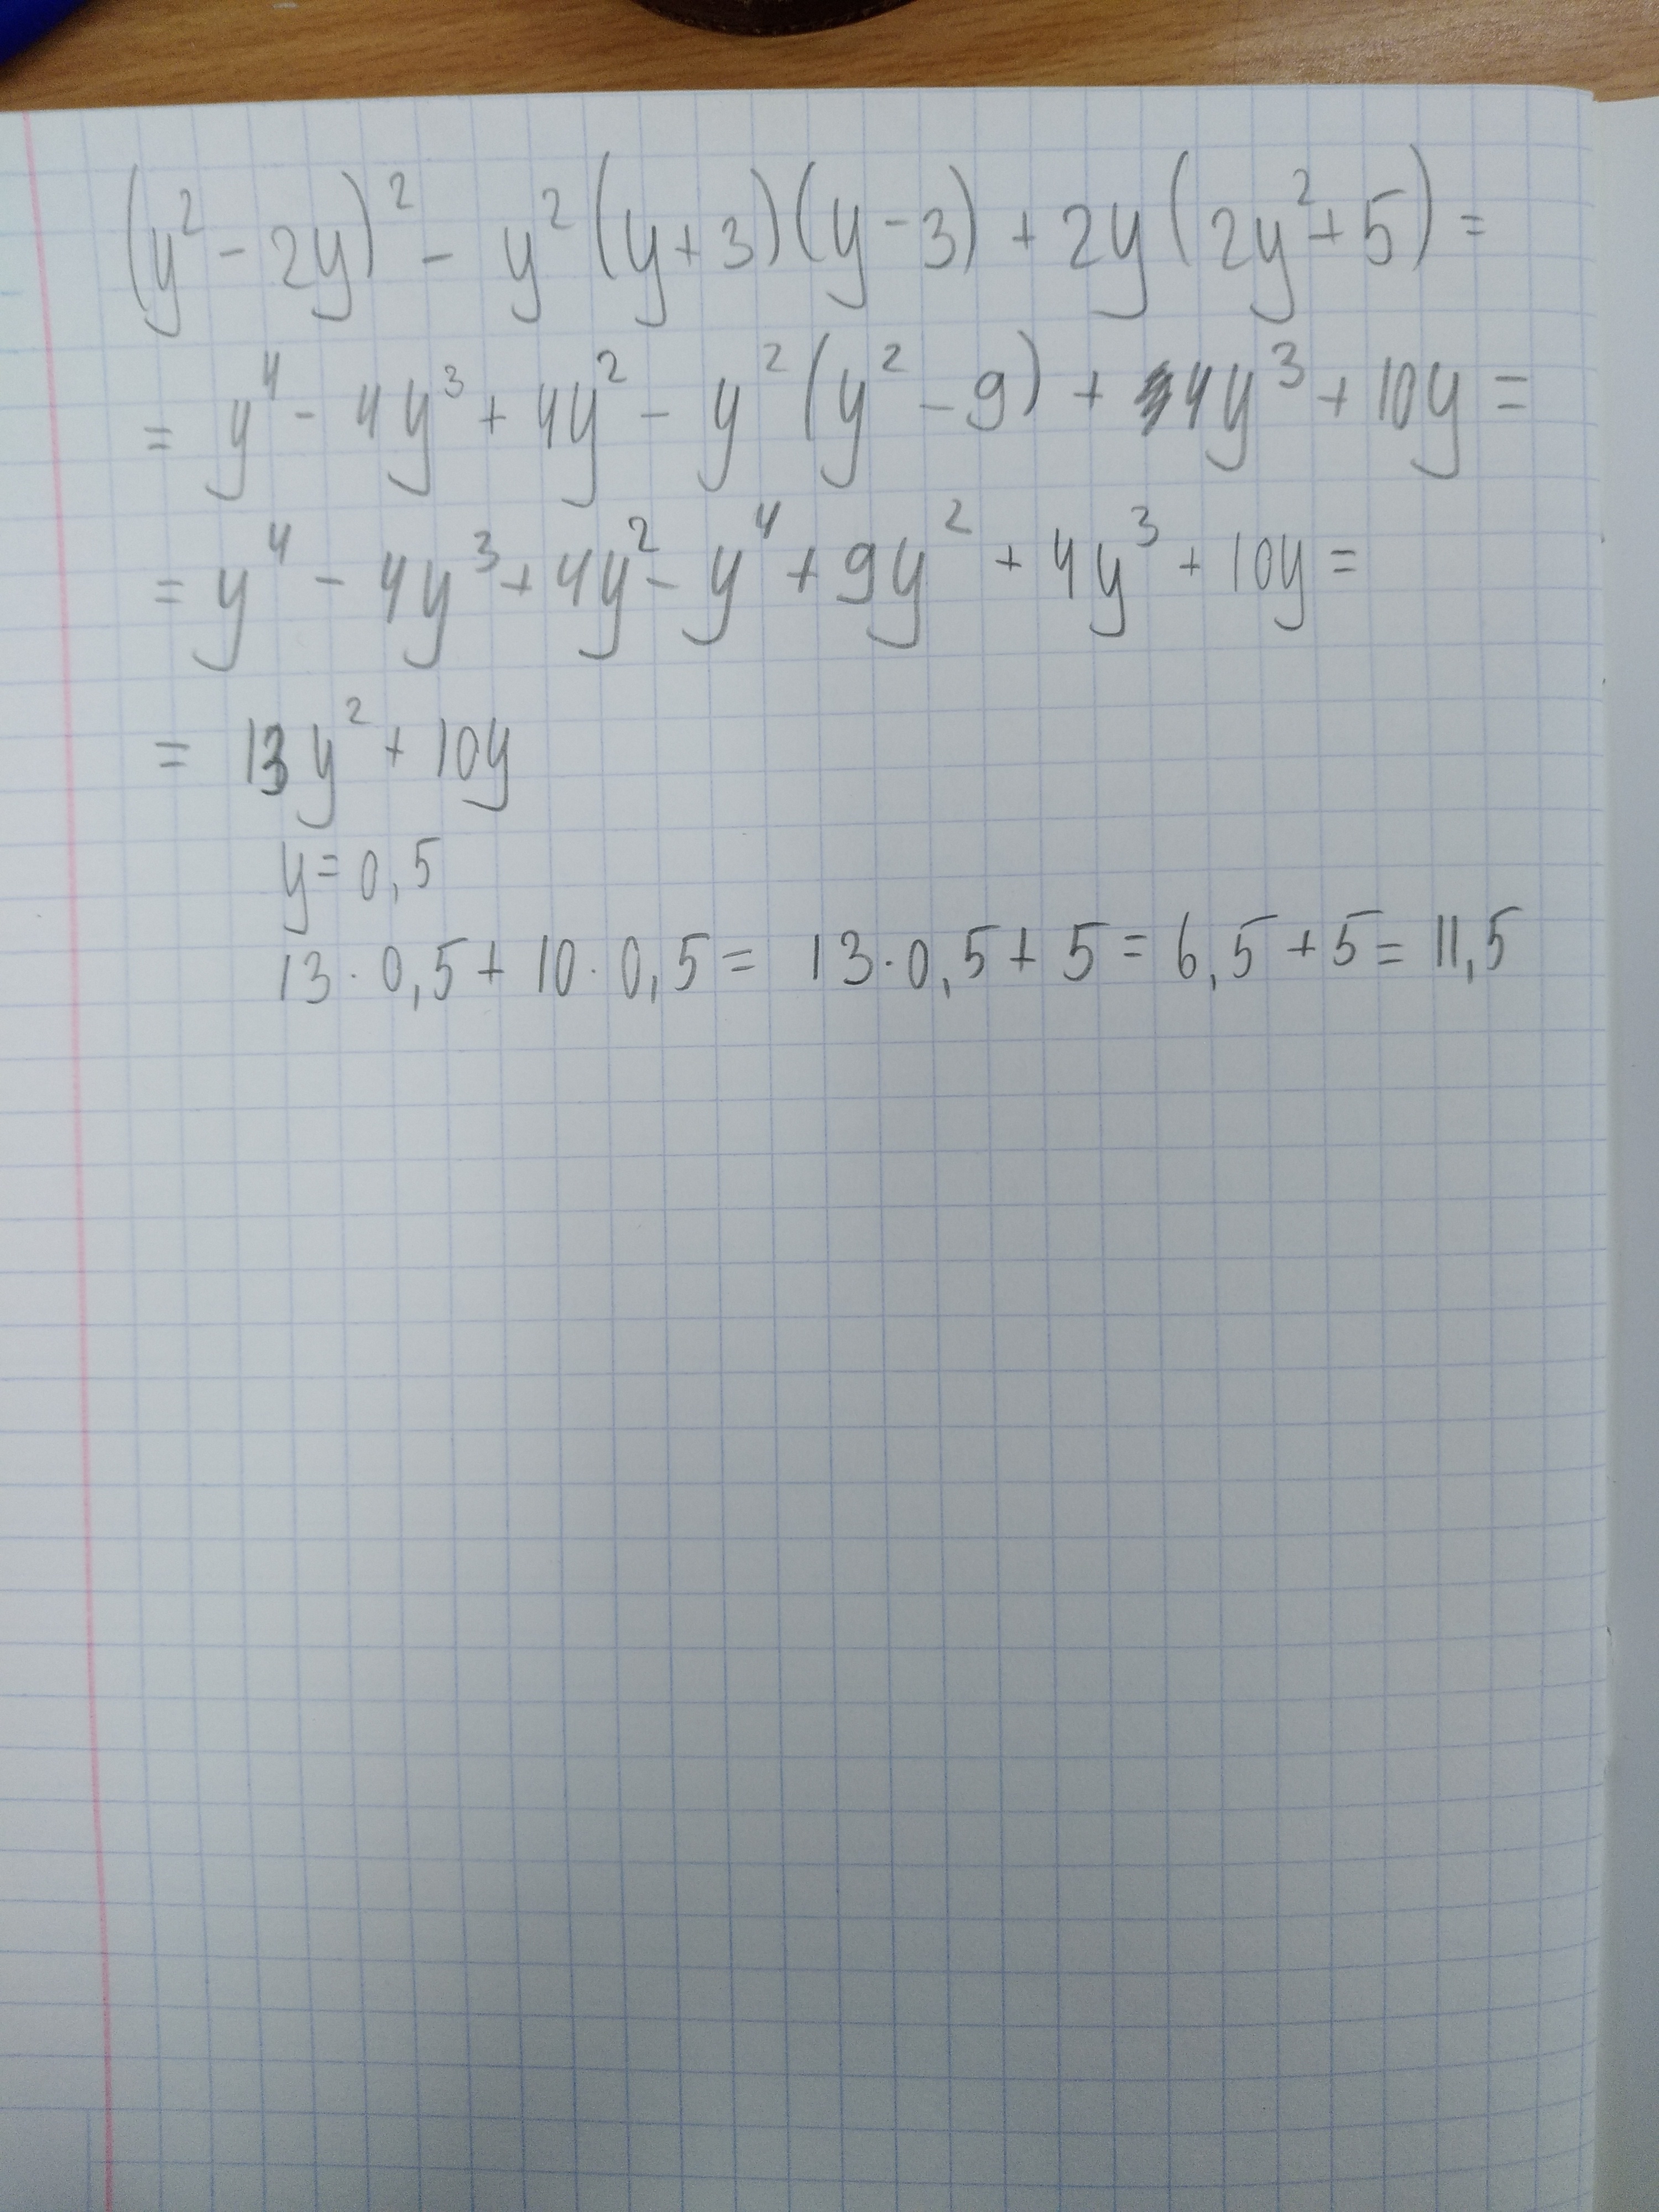 (y² - 2y)² - y²(y+3)(y-3) + 2y(2y²+5) =
= y⁴ - 4y³ + 4y² - y²(y² - 9) + 4y³ + 10y =
= y⁴ - 4y³ + 4y² - y⁴ + 9y² + 4y³ + 10y =
= 13y² + 10y
y = 0,5
13 · 0,5 + 10 · 0,5 = 13 · 0,5 + 5 = 6,5 + 5 = 11,5